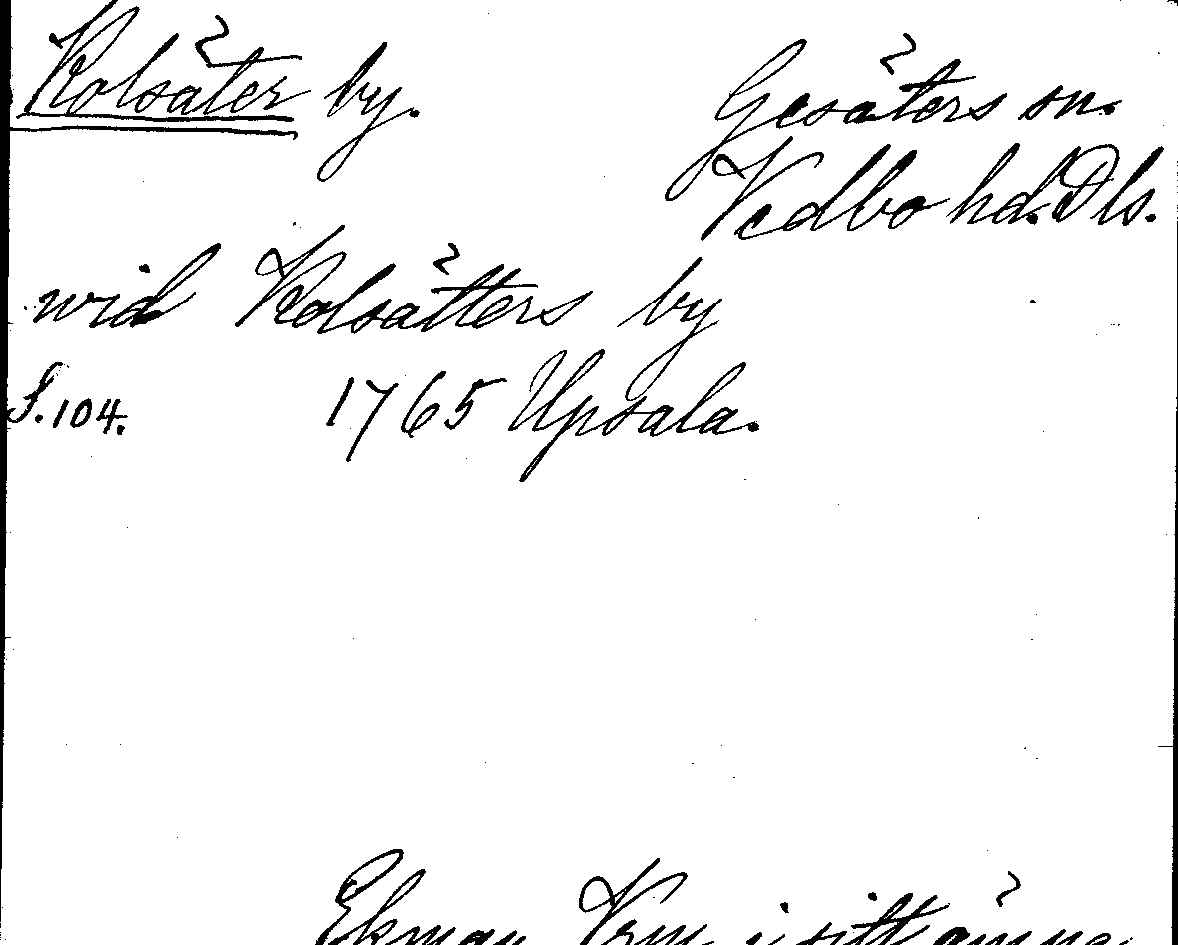 Kolsäter by.
Gesäters sn.
Vedbo hd. Dls.
wid Kolsätters by
S. 104. 1765 Upsala.
Ekman Vrm i sitt ämne